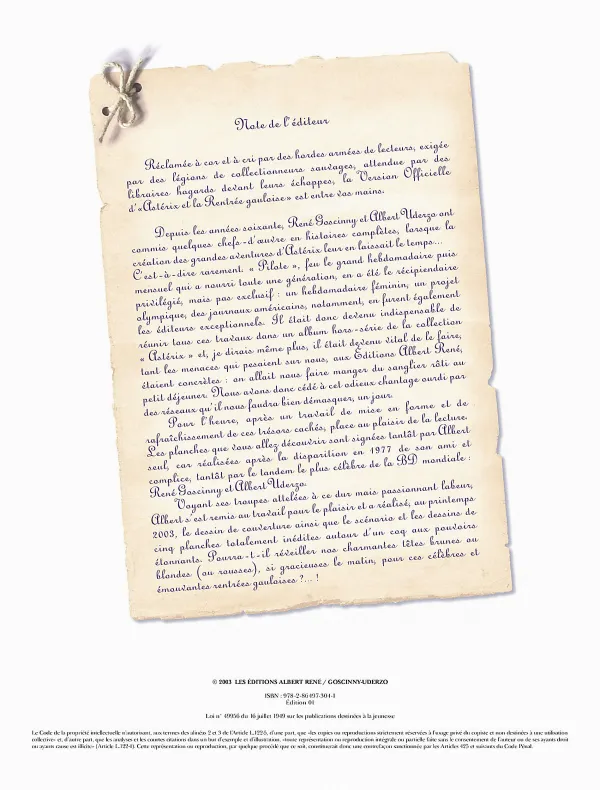 Note de l'éditeur
Réclamée à cor et à cri par des hordes armées de lecteurs, exigée
par des légions de collectionneurs sauvages, attendue par des
libraires hagards devant leurs échoppes, la Version Officielle
d'«Astérix et la Rentrée gauloise» est entre vos mains.
Depuis les années soixante, René Goscinny et Albert Uderzo ont
commis quelques chefs-d'œuvre en histoires complètes, lorsque la
création des grandes aventures d'Astérix leur en laissait le temps...
C'est-à-dire rarement. « Pilote », feu le grand hebdomadaire puis
mensuel qui a nourri toute une génération, en a été le récipiendaire
privilégié, mais pas exclusif : un hebdomadaire féminin, un projet
olympique, des journaux américains, notamment, en furent également
les éditeurs exceptionnels. Il était donc devenu indispensable de
réunir tous ces travaux dans un album hors-série de la collection
« Astérix » et, je dirais même plus, il était devenu vital de le faire,
tant les menaces qui pesaient sur nous, aux Editions Albert René,
étaient concrètes : on allait nous faire manger du sanglier rôti au
petit déjeuner. Nous avons donc cédé à cet odieux chantage ourdi par
des réseaux qu'il nous faudra bien démasquer, un jour.
Pour l'heure, après un travail de mise en forme et de
rafraîchissement de ces trésors cachés, place au plaisir de la lecture.
Les planches que vous allez découvrir sont signées tantôt par Albert
seul, car réalisées après la disparition en 1977 de son ami et
complice, tantôt par le tandem le plus célèbre de la BD mondiale :
René Goscinny et Albert Uderzo.
Voyant ses troupes attelées à ce dur mais passionnant labeur,
Albert s'est remis au travail pour le plaisir et a réalisé, au printemps
2003, le dessin de couverture ainsi que le scénario et les dessins de
cinq planches totalement inédites autour d'un coq aux pouvoirs
étonnants. Pourra-t-il réveiller nos charmantes têtes brunes ou
blondes (ou rousses), si gracieuses le matin, pour ces célèbres et
émouvantes rentrées gauloises ?... !
© 2003 LES ÉDITIONS ALBERT RENÉ / GOSCINNY-UDERZO
ISBN : 978-2-86497-304-1
Édition 01
Loi n° 49956 du 16 juillet 1949 sur les publications destinées à la jeunesse
Le Code de la propriété intellectuelle n'autorisant, aux termes des alinéas 2 et 3 de l'Article L.122-5, d'une part, que «les copies ou reproductions strictement réservées à l'usage privé du copiste et non destinées à une utilisation
collective» et, d'autre part, que les analyses et les courtes citations dans un but d'exemple et d'illustration, «toute représentation ou reproduction intégrale ou partielle faite sans le consentement de l'auteur ou de ses ayants droit
ou ayants cause est illicite» (Article L.122-4). Cette représentation ou reproduction, par quelque procédé que ce soit, constituerait donc une contrefaçon sanctionnée par les Articles 425 et suivants du Code Pénal.